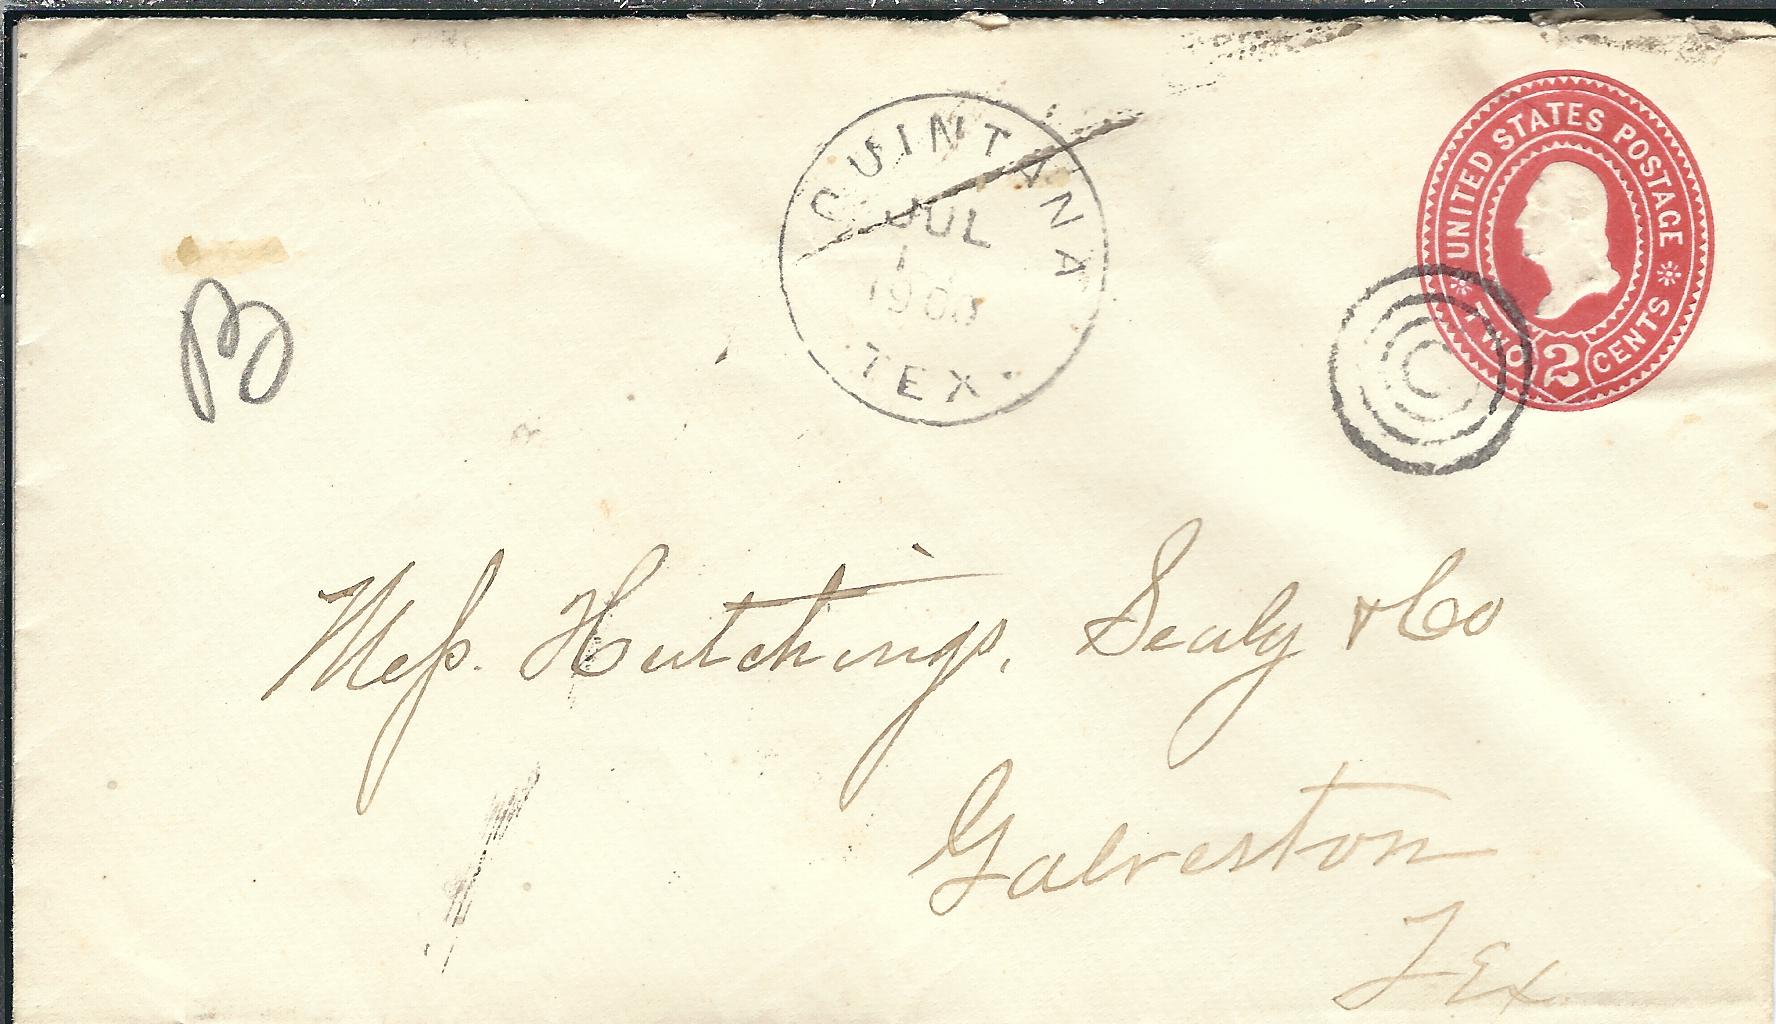 QUINTANA
JUL
1
1900
TEX.
UNITED STATES POSTAGE
TWO 2 CENTS
B
Mess. Hutchings, Sealy & Co
Galveston
Tex